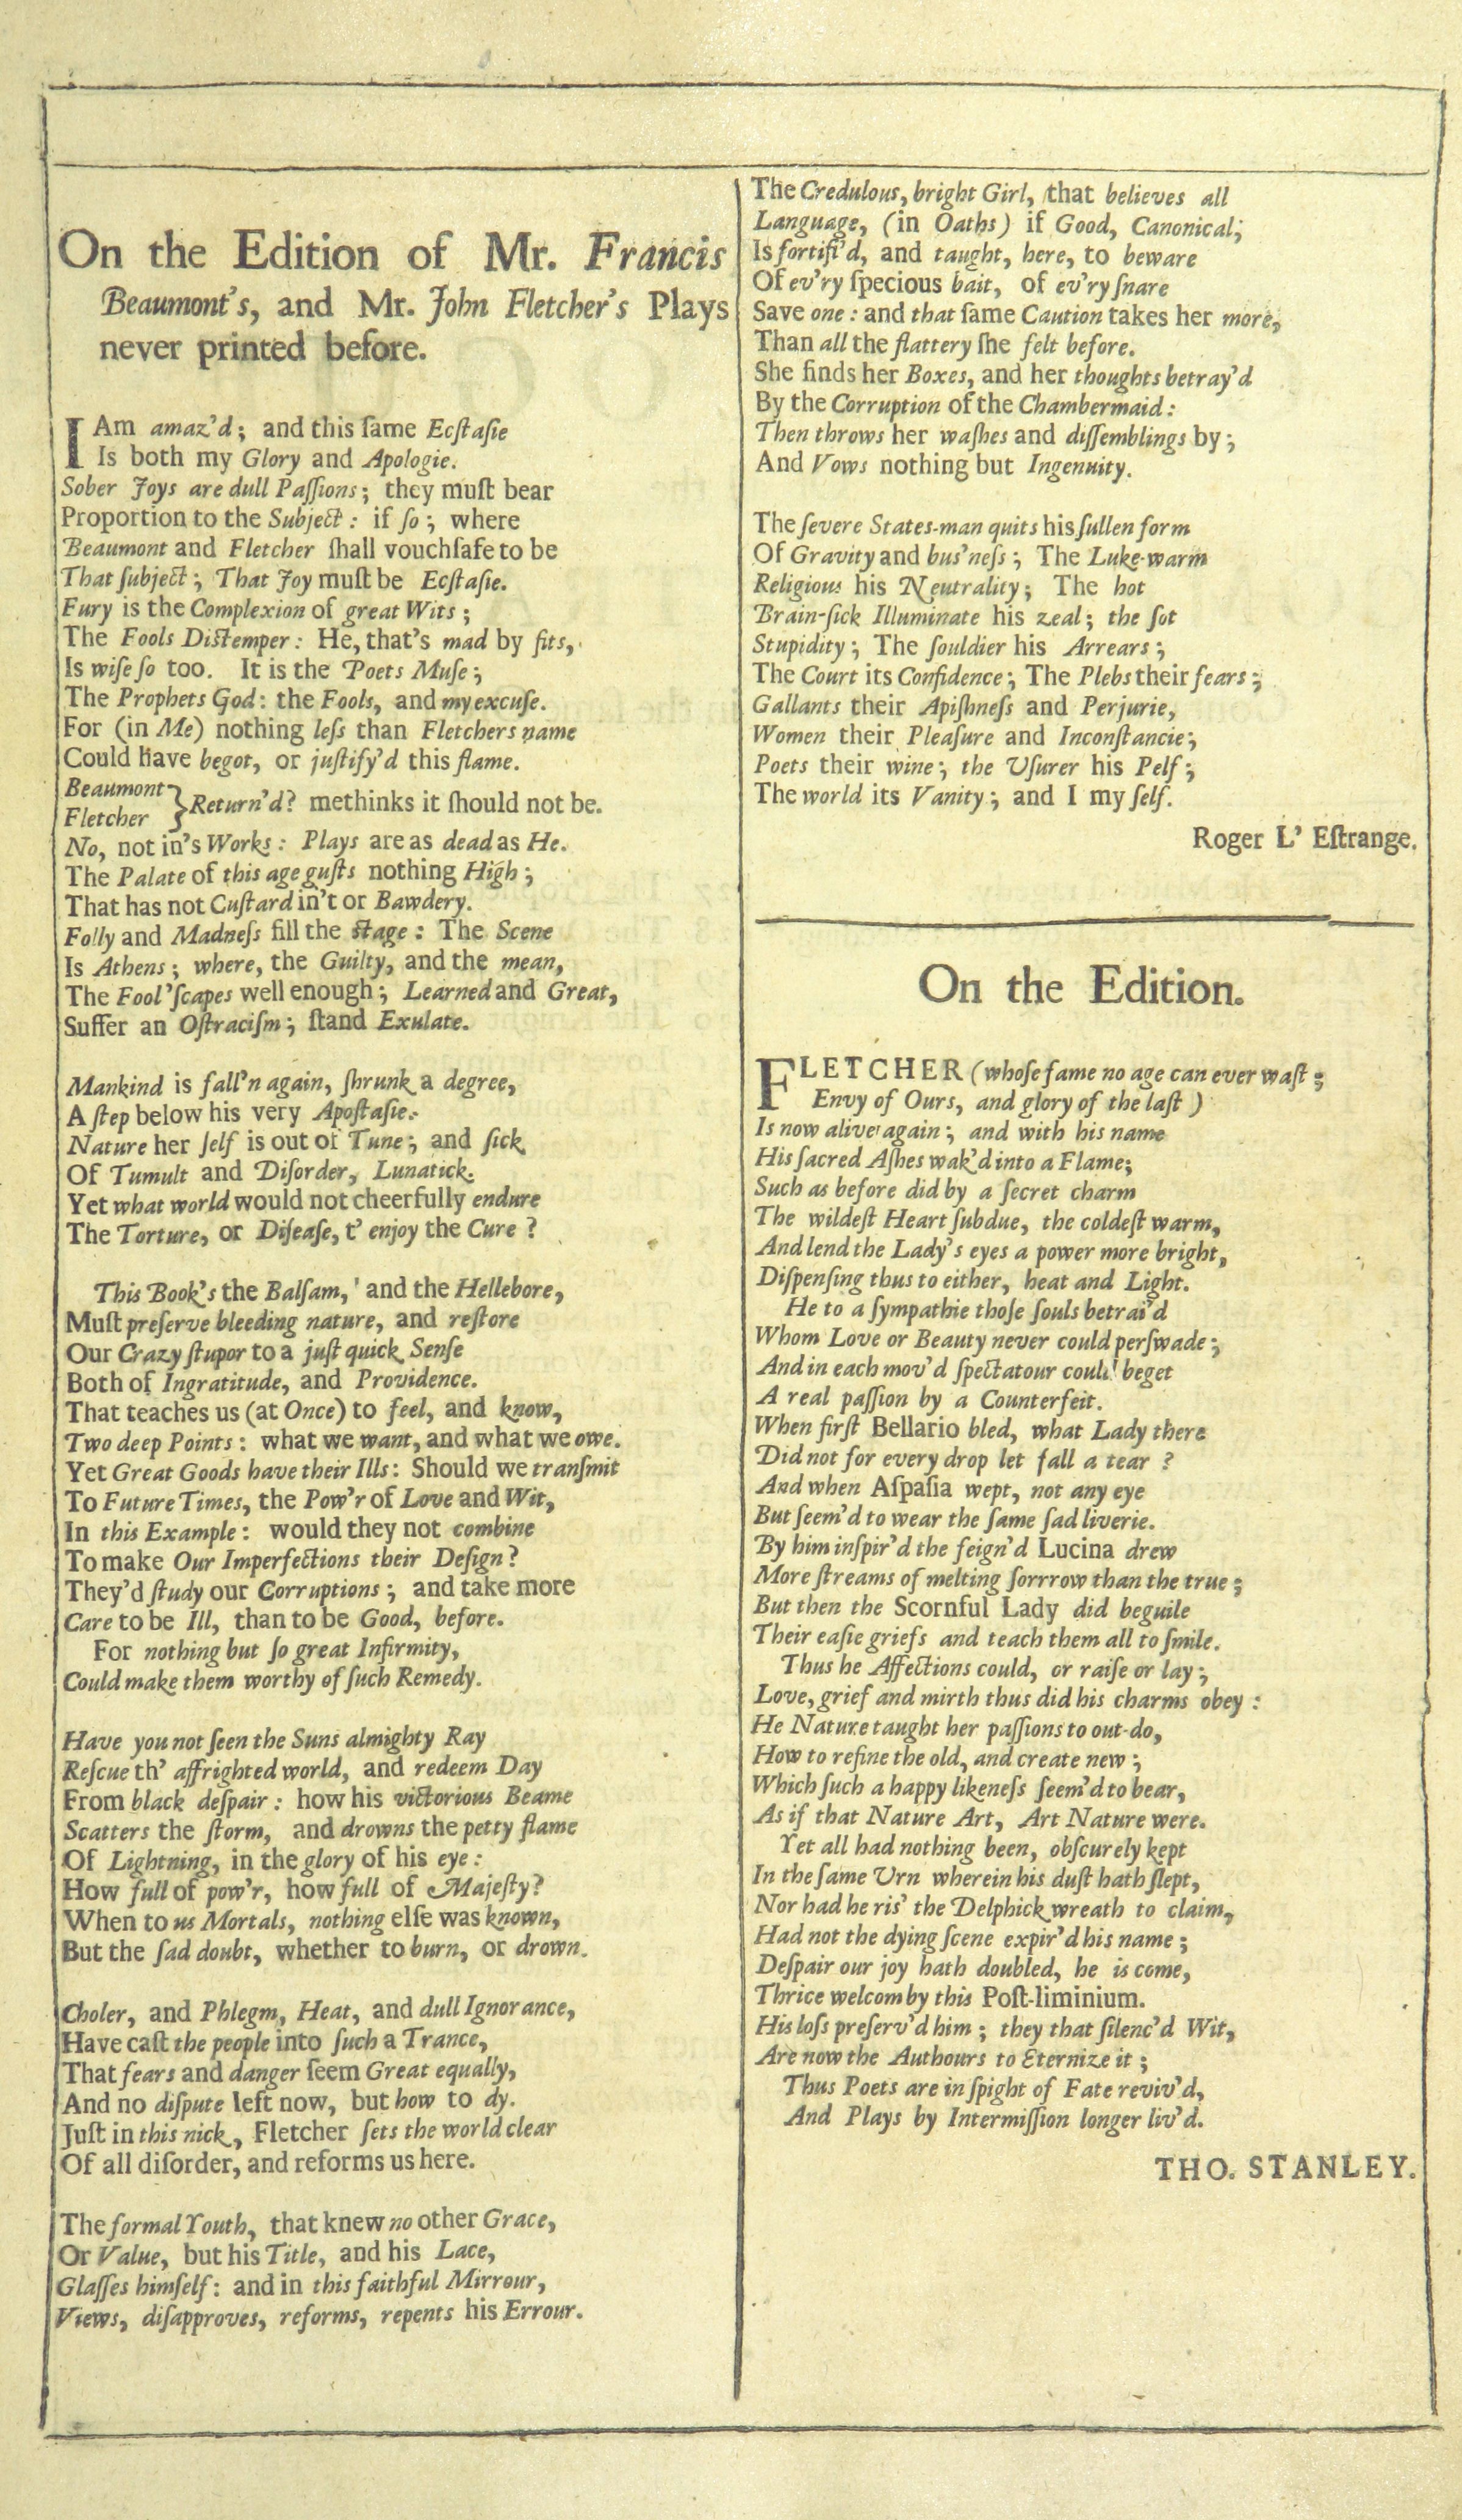 On the Edition of Mr. Francis
Beaumont's, and Mr. John Fletcher's Plays
never printed before.
I Am amaz'd; and this ſame Ecſtaſie
Is both my Glory and Apologie.
Sober Joys are dull Paſſions; they muſt bear
Proportion to the Subject: if ſo; where
Beaumont and Fletcher ſhall vouchſafe to be
That ſubject; That Joy muſt be Ecſtaſie.
Fury is the Complexion of great Wits;
The Fools Diſtemper: He, that's mad by fits,
Is wiſe ſo too. It is the Poets Muſe;
The Prophets God: the Fools, and my excuſe.
For (in Me) nothing leſs than Fletchers name
Could have begot, or juſtify'd this flame.
Beaumont
Fletcher } Return'd? methinks it ſhould not be.
No, not in's Works: Plays are as dead as He.
The Palate of this age guſts nothing High;
That has not Cuſtard in't or Bawdery.
Folly and Madneſs fill the ſtage: The Scene
Is Athens; where, the Guilty, and the mean,
The Fool 'ſcapes well enough; Learned and Great,
Suffer an Oſtraciſm; ſtand Exulate.
Mankind is fall'n again, ſhrunk a degree,
A ſtep below his very Apoſtaſie.
Nature her ſelf is out of Tune; and ſick
Of Tumult and Diſorder, Lunatick.
Yet what world would not cheerfully endure
The Torture, or Diſeaſe, t' enjoy the Cure?
This Book's the Balſam, and the Hellebore,
Muſt preſerve bleeding nature, and reſtore
Our Crazy ſtupor to a juſt quick Senſe
Both of Ingratitude, and Providence.
That teaches us (at Once) to feel, and know,
Two deep Points: what we want, and what we owe.
Yet Great Goods have their Ills: Should we tranſmit
To Future Times, the Pow'r of Love and Wit,
In this Example: would they not combine
To make Our Imperfections their Deſign?
They'd ſtudy our Corruptions; and take more
Care to be Ill, than to be Good, before.
For nothing but ſo great Infirmity,
Could make them worthy of ſuch Remedy.
Have you not ſeen the Suns almighty Ray
Reſcue th' affrighted world, and redeem Day
From black deſpair: how his victorious Beame
Scatters the ſtorm, and drowns the petty flame
Of Lightning, in the glory of his eye:
How full of pow'r, how full of Majeſty?
When to us Mortals, nothing elſe was known,
But the ſad doubt, whether to burn, or drown.
Choler, and Phlegm, Heat, and dull Ignorance,
Have caſt the people into ſuch a Trance,
That fears and danger ſeem Great equally,
And no diſpute left now, but how to dy.
Juſt in this nick, Fletcher ſets the world clear
Of all diſorder, and reforms us here.
The formal Youth, that knew no other Grace,
Or Value, but his Title, and his Lace,
Glaſſes himſelf: and in this faithful Mirrour,
Views, diſapproves, reforms, repents his Errour.
The Credulous, bright Girl, that believes all
Language, (in Oaths) if Good, Canonical;
Is fortifi'd, and taught, here, to beware
Of ev'ry ſpecious bait, of ev'ry ſnare
Save one: and that ſame Caution takes her more,
Than all the flattery ſhe felt before.
She finds her Boxes, and her thoughts betray'd
By the Corruption of the Chambermaid:
Then throws her waſhes and diſſemblings by;
And Vows nothing but Ingenuity.
The ſevere States-man quits his ſullen form
Of Gravity and bus'neſs; The Luke-warm
Religious his Neutrality; The hot
Brain-ſick Illuminate his zeal; the ſot
Stupidity; The ſouldier his Arrears;
The Court its Confidence; The Plebs their fears;
Gallants their Apiſhneſs and Perjurie,
Women their Pleaſure and Inconſtancie;
Poets their wine; the Uſurer his Pelf;
The world its Vanity; and I my ſelf.
Roger L' Eſtrange.
On the Edition.
FLETCHER (whoſe fame no age can ever waſt;
Envy of Ours, and glory of the laſt)
Is now alive again; and with his name
His ſacred Aſhes wak'd into a Flame;
Such as before did by a ſecret charm
The wildeſt Heart ſubdue, the coldeſt warm,
And lend the Lady's eyes a power more bright,
Diſpenſing thus to either, heat and Light.
He to a ſympathie thoſe ſouls betrai'd
Whom Love or Beauty never could perſwade;
And in each mov'd ſpectatour could beget
A real paſſion by a Counterfeit.
When firſt Bellario bled, what Lady there
Did not for every drop let fall a tear?
And when Aſpaſia wept, not any eye
But ſeem'd to wear the ſame ſad liverie.
By him inſpir'd the feign'd Lucina drew
More ſtreams of melting ſorrrow than the true;
But then the Scornful Lady did beguile
Their eaſie griefs and teach them all to ſmile.
Thus he Affections could, or raiſe or lay;
Love, grief and mirth thus did his charms obey:
He Nature taught her paſſions to out-do,
How to refine the old, and create new;
Which ſuch a happy likeneſs ſeem'd to bear,
As if that Nature Art, Art Nature were.
Yet all had nothing been, obſcurely kept
In the ſame Urn wherein his duſt hath ſlept,
Nor had he ris' the Delphick wreath to claim,
Had not the dying ſcene expir'd his name;
Deſpair our joy hath doubled, he is come,
Thrice welcom by this Poſt-liminium.
His loſs preſerv'd him; they that ſilenc'd Wit,
Are now the Authours to Eternize it;
Thus Poets are in ſpight of Fate reviv'd,
And Plays by Intermiſſion longer liv'd.
THO. STANLEY.